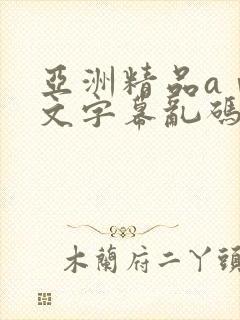 亞洲精品a
文字幕亂碼
木蘭府二丫頭